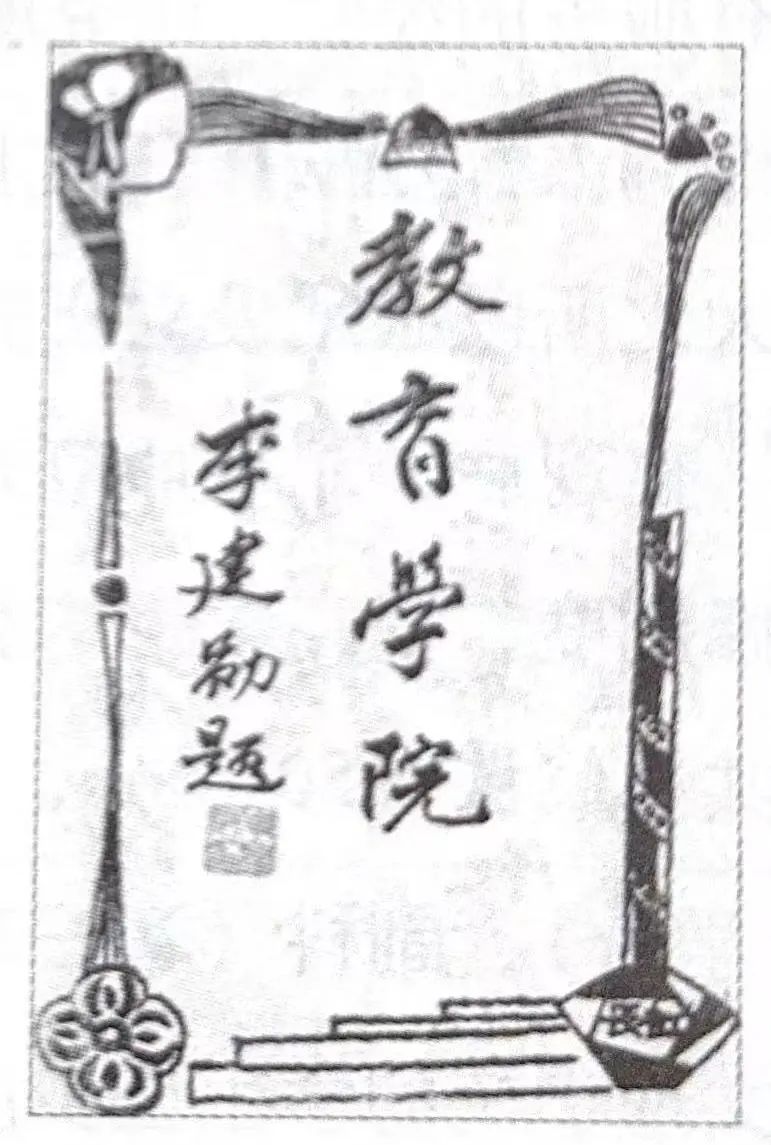 教育學院
李建勛題